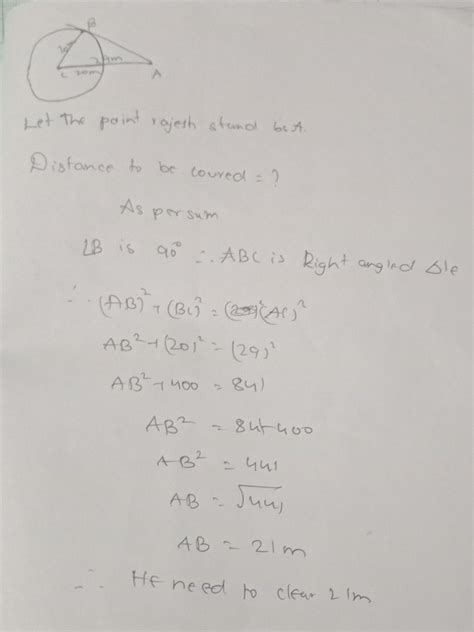 B
20
29m
C 20m A
Let The point rajesh stand be A.
Distance to be coured = ?
As per sum
∠B is 90° ∴ ABC is Right angled Δle
∴ (AB)² + (BC)² = (AC)²
AB² + (20)² = (29)²
AB² + 400 = 841
AB² = 841-400
AB² = 441
AB = √441
AB = 21m
∴ He need to clear 21m